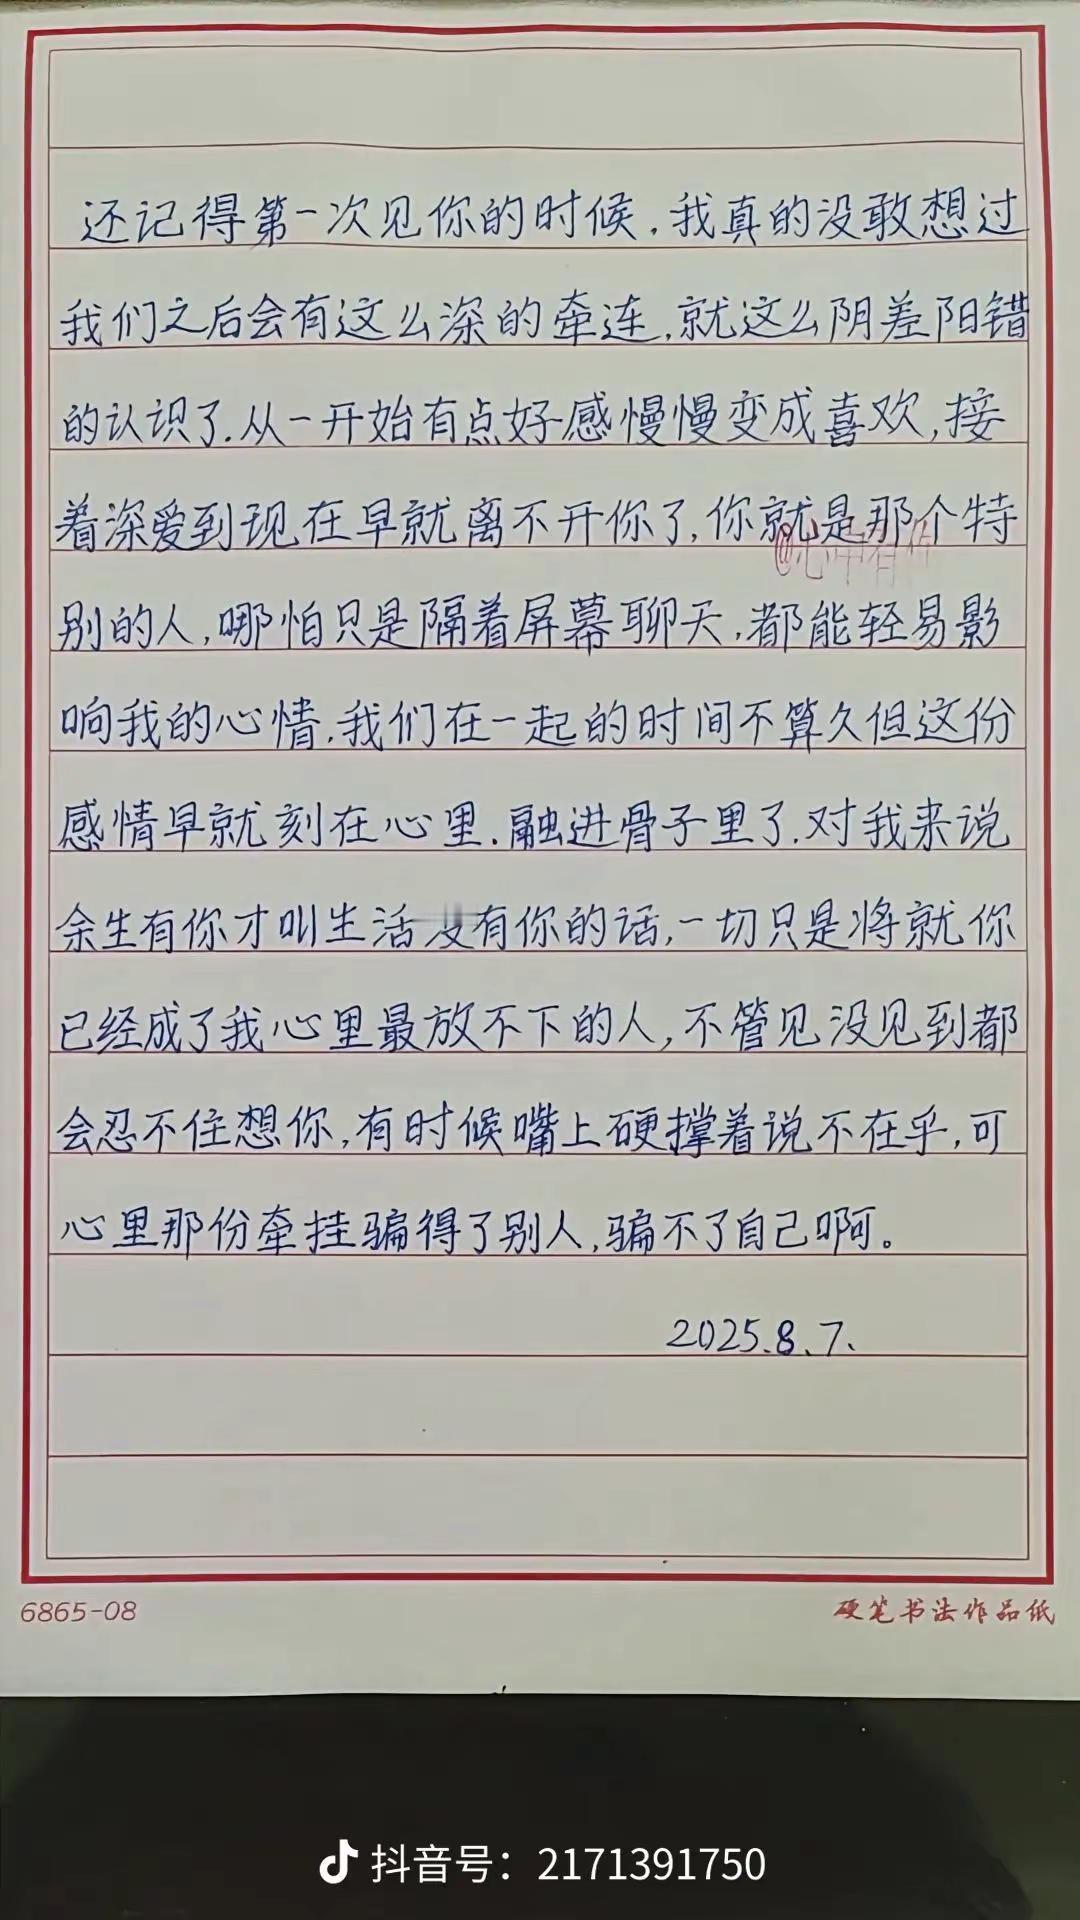 还记得第一次见你的时候,我真的没敢想过
我们之后会有这么深的牵连,就这么阴差阳错
的认识了.从一开始有点好感慢慢变成喜欢,接
着深爱到现在早就离不开你了,你就是那个特
@心中有你
别的人,哪怕只是隔着屏幕聊天,都能轻易影
响我的心情.我们在一起的时间不算久但这份
感情早就刻在心里.融进骨子里了.对我来说
余生有你才叫生活没有你的话,一切只是将就你
已经成了我心里最放不下的人,不管见没见到都
会忍不住想你,有时候嘴上硬撑着说不在乎,可
心里那份牵挂骗得了别人,骗不了自己啊。
2025.8.7.
6865-08 硬笔书法作品纸
抖音号：2171391750